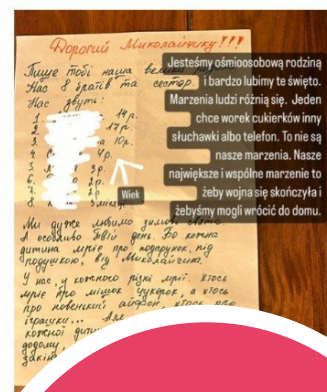 Дорогий Миколайчику!!!
Пише тобі наша
Нас 8 братів та сестер.
Нас звуть:
1 14р.
2. 17р.
3. а 10р.
4 4р.
5. 3р.
6. 2р.
7. 2р.
8. 3 місяці
Ми дуже любимо зимові свята.
А особливо твій день. Бо кожна
дитина мріє про подарунок під
подушкою, від Миколайчика.
У нас, у кожного різні мрії. Хтось
мріє про мішок цукерок, а хтось
про новенький айфон, хтось про
іграшку...
кожної
додому
Jesteśmy ośmioosobową rodziną
i bardzo lubimy te święto.
Marzenia ludzi różnią się. Jeden
chce worek cukierków inny
słuchawki albo telefon. To nie są
nasze marzenia. Nasze
największe i wspólne marzenie to
żeby wojna się skończyła i
żebyśmy mogli wrócić do domu.
Wiek